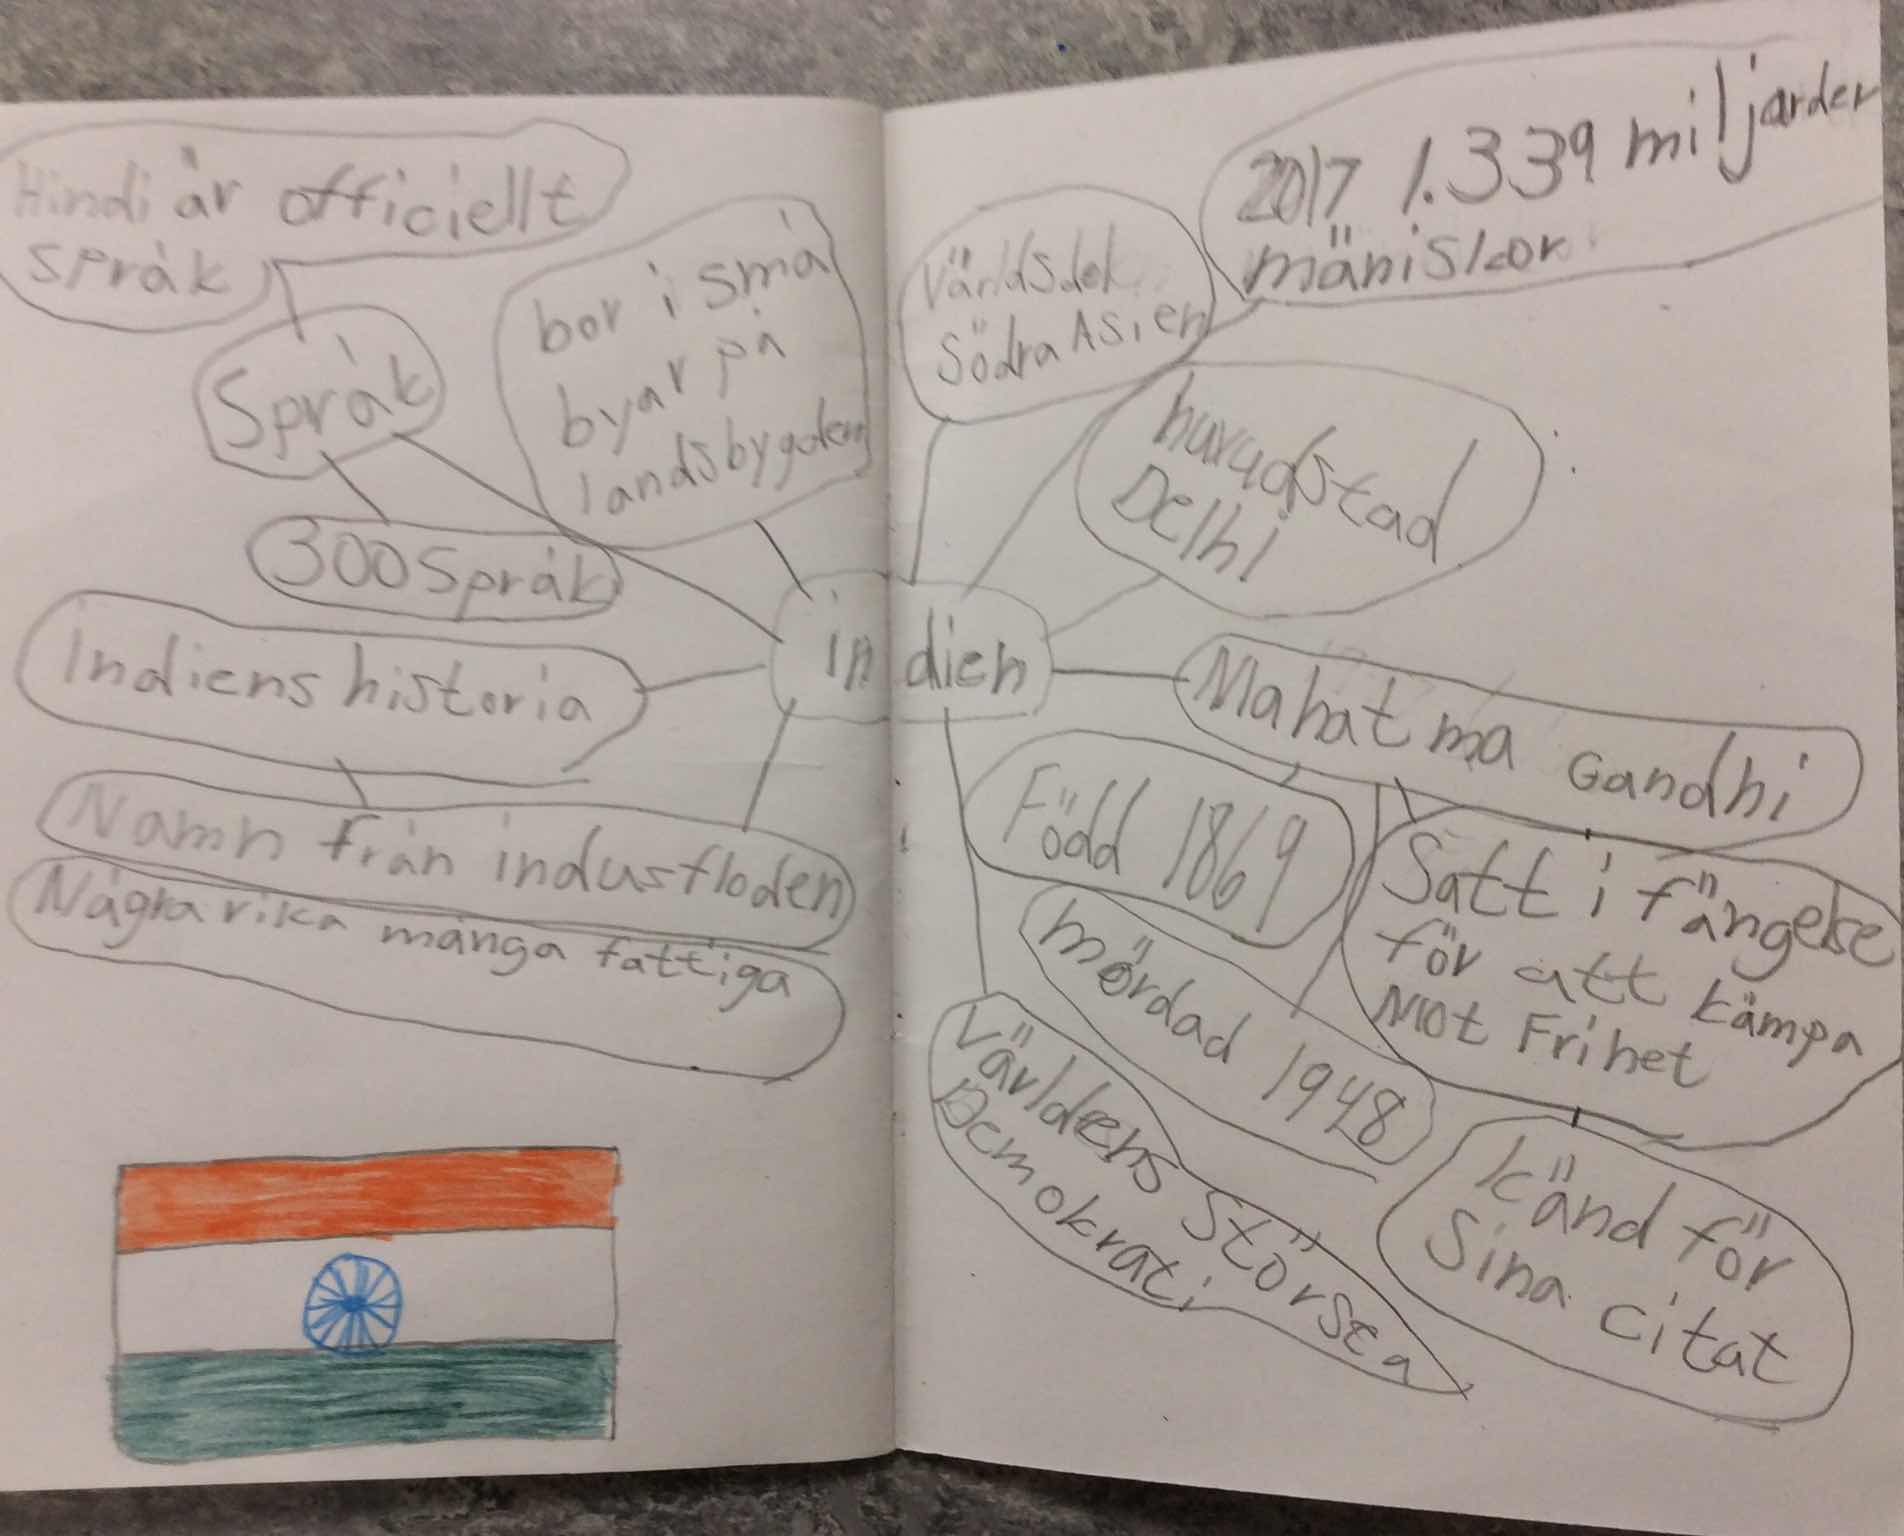 Hindi är officiellt
språk
Språk
300 Språk
bor i små
byar på
landsbygden
Indiens historia
Namn från indusfloden
Några rika många fattiga
indien
Världsdel
Södra Asien
2017 1.339 miljarder
mäniskor
huvudstad
Delhi
Mahatma Gandhi
Född 1869
Satt i fängelse
för att kämpa
Mot Frihet
mördad 1948
känd för
Sina citat
Världens Största
Demokrati